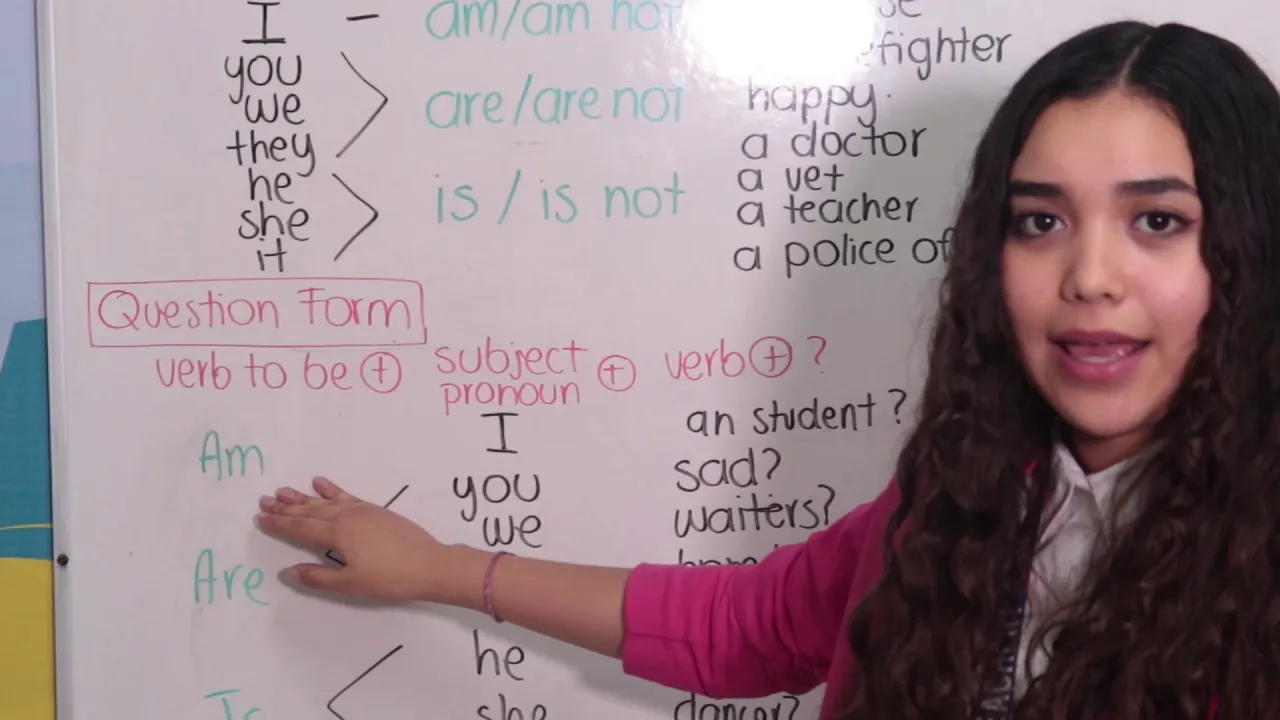 I – am/am not
fighter
you
we are/are not happy.
they a doctor
he a vet
she is / is not a teacher
it a police of
Question Form
verb to be + subject pronoun + verb + ?
Am I an student?
you sad?
we waiters?
Are
he
she dancer?